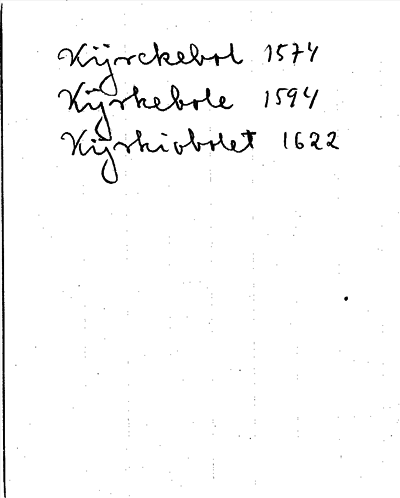 Kÿrckebol 1574
Kÿrkebole 1594
Kÿrkiobolet 1622